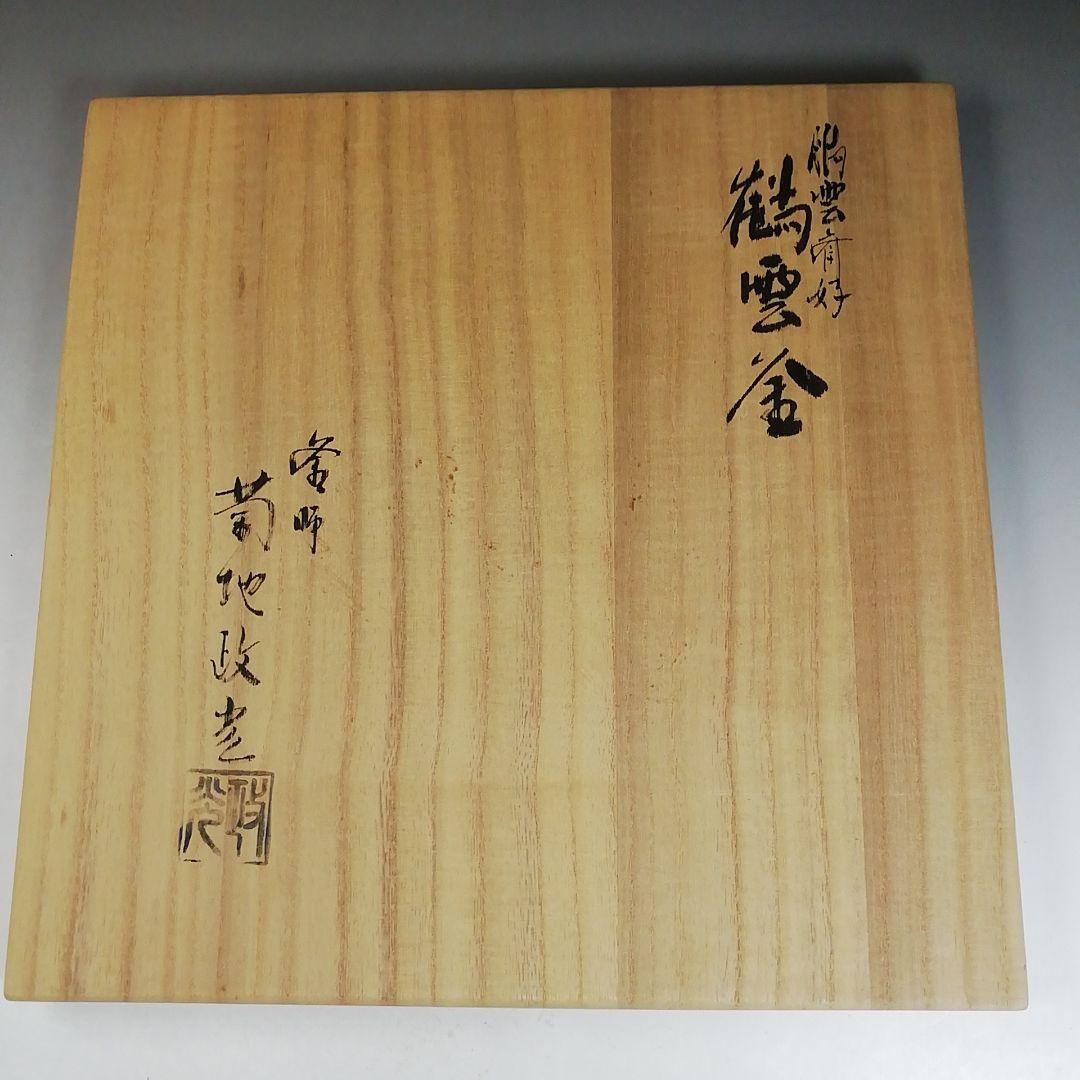 鵬雲斎好
鶴雲釜
釜師
菊地政光
政光